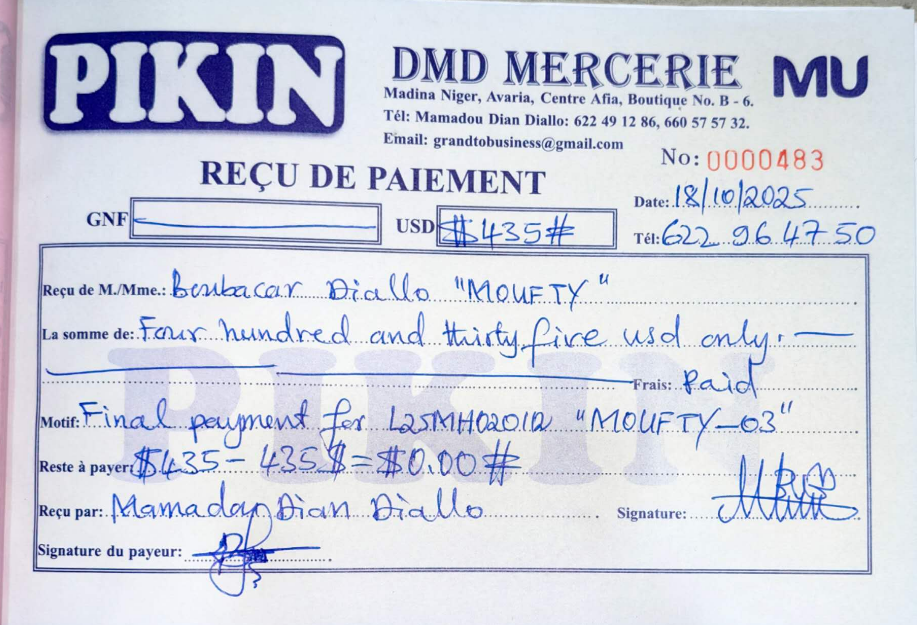 PIKIN
DMD MERCERIE MU
Madina Niger, Avaria, Centre Afia, Boutique No. B - 6.
Tél: Mamadou Dian Diallo: 622 49 12 86, 660 57 57 32.
Email: grandtobusiness@gmail.com
No: 0000483
REÇU DE PAIEMENT
Date: 18/10/2025
GNF USD #435#
Tél: 622 96 47 50
Reçu de M./Mme.: Boubacar Diallo "MOUFTY"
La somme de: Four hundred and thirty five usd only.
Frais: Paid
Motif: Final payment for L25MH02012 "MOUFTY-03"
Reste à payer: $435 - 435$ = $0.00#
Reçu par: Mamadou Dian Diallo Signature:
Signature du payeur:
PIKIN